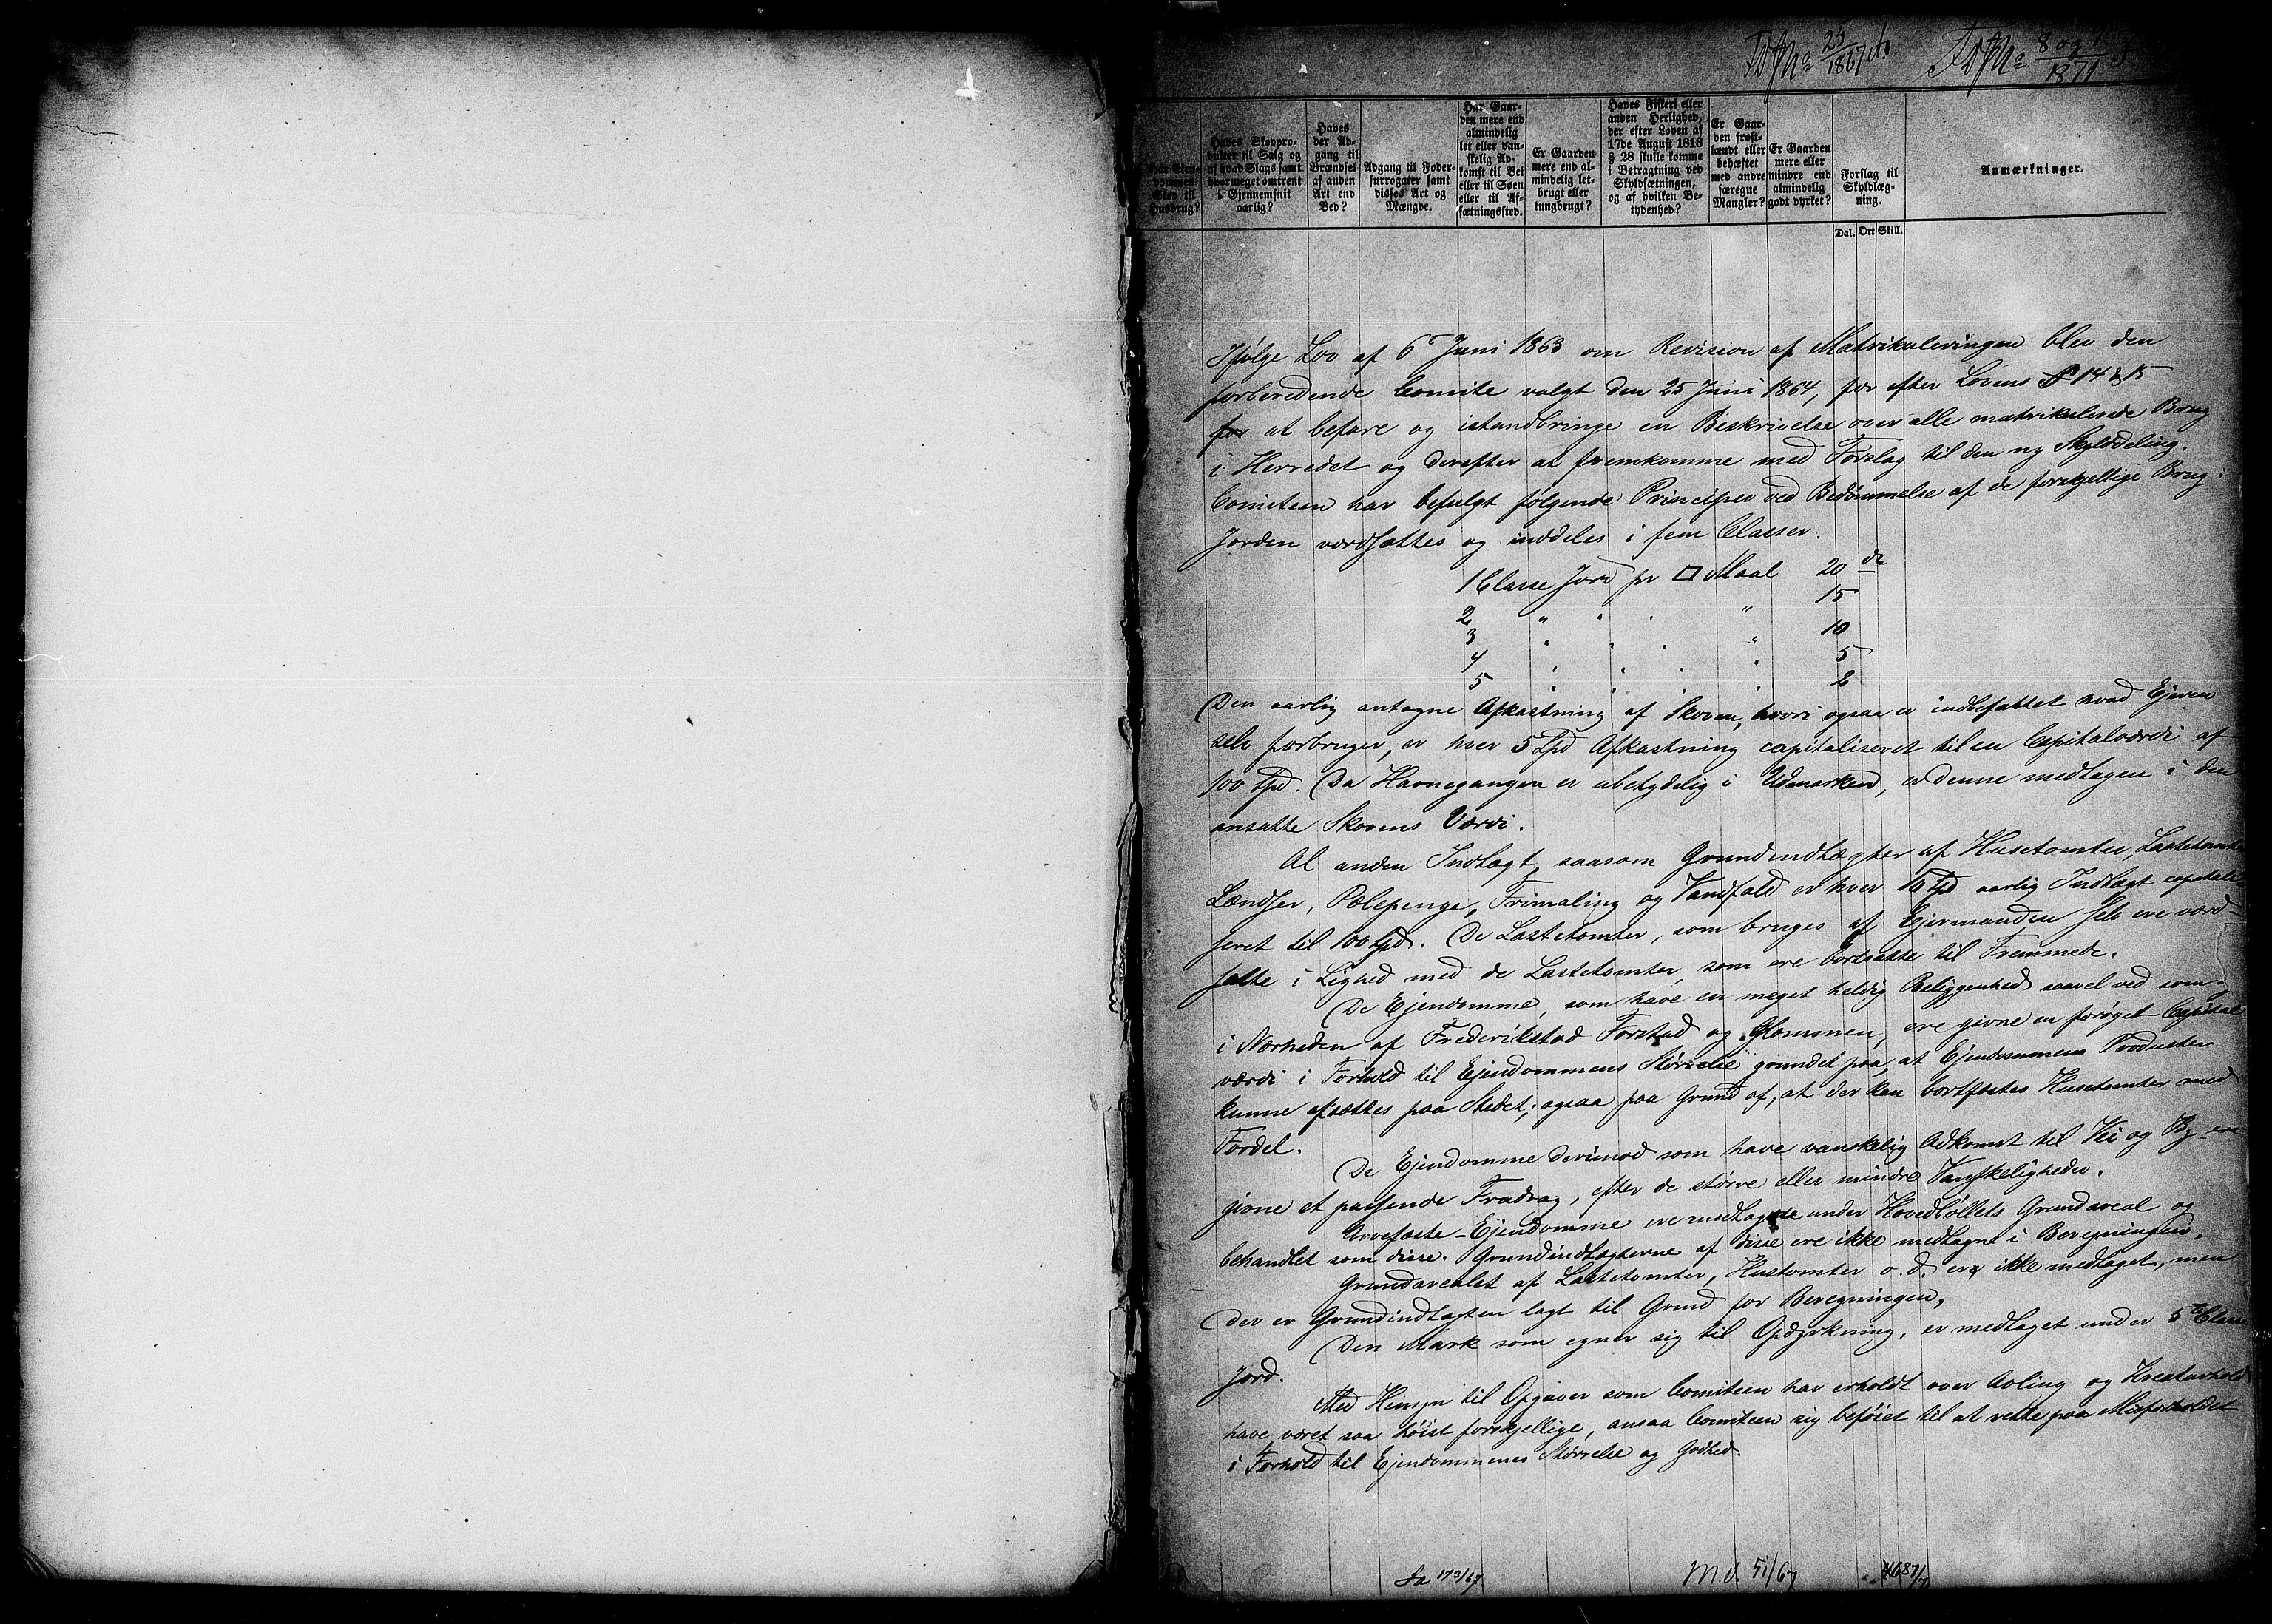 25/1867
8 og 9/1871
Har Eien-
dommen
Skov til
Husbrug?
Haves Skovpro-
dukter til Salg og
af hvad Slags samt
hvormeget omtrent
i Gjennemsnit
aarlig?
Haves
der Ad-
gang til
Brændsel
af anden
Art end
Ved?
Adgang til Foder-
surrogater samt
disses Art og
Mængde.
Har Gaar-
den mere end
almindelig
let eller van-
skelig Ad-
komst til Vei
eller til Søen
eller til Af-
sætningssted.
Er Gaarden
mere end al-
mindelig let-
brugt eller
tungbrugt?
Haves Fiskeri eller
anden Herlighed,
der efter Loven af
17de August 1818
§ 28 skulle komme
i Betragtning ved
Skyldsætningen,
og af hvilken Be-
tydenhed?
Er Gaar-
den frost-
lændt eller
behæftet
med andre
særegne
Mangler?
Er Gaarden
mere eller
mindre end
almindelig
godt dyrket?
Forslag til
Skyldlæg-
ning.
Dal. Ort Skill.
Anmærkninger.
Ifølge Lov af 6 Juni 1863 om Revision af Matrikuleringen blev den
forberedende Comite valgt den 25 Juni 1864, for efter Lovens § 14 & 15
for at befare og istandbringe en Beskrivelse over alle matrikulerede Brug
i Herredet og derefter at fremkomme med Forslag til den ny Skylddeling.
Comiteen har befulgt følgende Principer ved Bedømmelse af de forskjellige Brug:
Jorden værdsættes og inddeles i fem Classer.
1 Classe Jord pr □ Maal 20
2 " " " " 15
3 " " " " 10
4 " " " " 5
5 " " " " 2
Den aarlig antagne Afkastning af Skoven, hvori ogsaa er indbefattet hvad Ejeren
selv forbruger, er hver 5 Spd Afkastning capitaliseret til en Capitalværdi af
100 Spd. Da Havnegangen er ubetydelig i Udmarken, er denne medtagen i den
ansatte Skovens Værdi.
Al anden Indtægt, saasom Grundindtægter af Husetomter, Lastetomter
Lændser, Pælepenge, Frimaling og Vandfald er hver 10 Spd aarlig Indtægt capitali
seret til 100 Spd. De Lastetomter, som bruges af Ejermanden selv ere værd-
satte i Lighed med de Lastetomter, som ere bortsatte til Fremmede.
De Ejendomme, som have en meget heldig Beliggenhed saavel ved som
i Nærheden af Frederikstad Forstad og Glommen, ere givne en forøget Capital
værdi i Forhold til Ejendommens Størrelse grundet paa, at Ejendommens Producter
kunne afsættes paa Stedet, ogsaa paa Grund af, at der kan bortfæstes Husetomter med
Fordel.
De Ejendomme derimod som have vanskelig Adkomst til Vei og By ere
givne et passende Fradrag, efter de større eller mindre Vanskeligheder.
Arvefæste-Ejendomme ere medtagne under Hovedbøllets Grundareal og
behandlet som disse. Grundindtægterne af disse ere ikke medtagne i Beregningen.
Grundarealet af Lastetomter, Hustomter o.d. er ikke medtaget, men
der er Grundindtægten lagt til Grund for Beregningen.
Den Mark som egner sig til Opdyrkning, er medtaget under 5te Classe
Jord.
Med Hensyn til Opgaver som Comiteen har erholdt over Avling og Kreaturhold
have været saa høist forskjellige, ansaa Comiteen sig beføiet til at rette paa Misforholdet
i Forhold til Ejendommenes Størrelse og Godhed.
173/67 M.d. 51/67